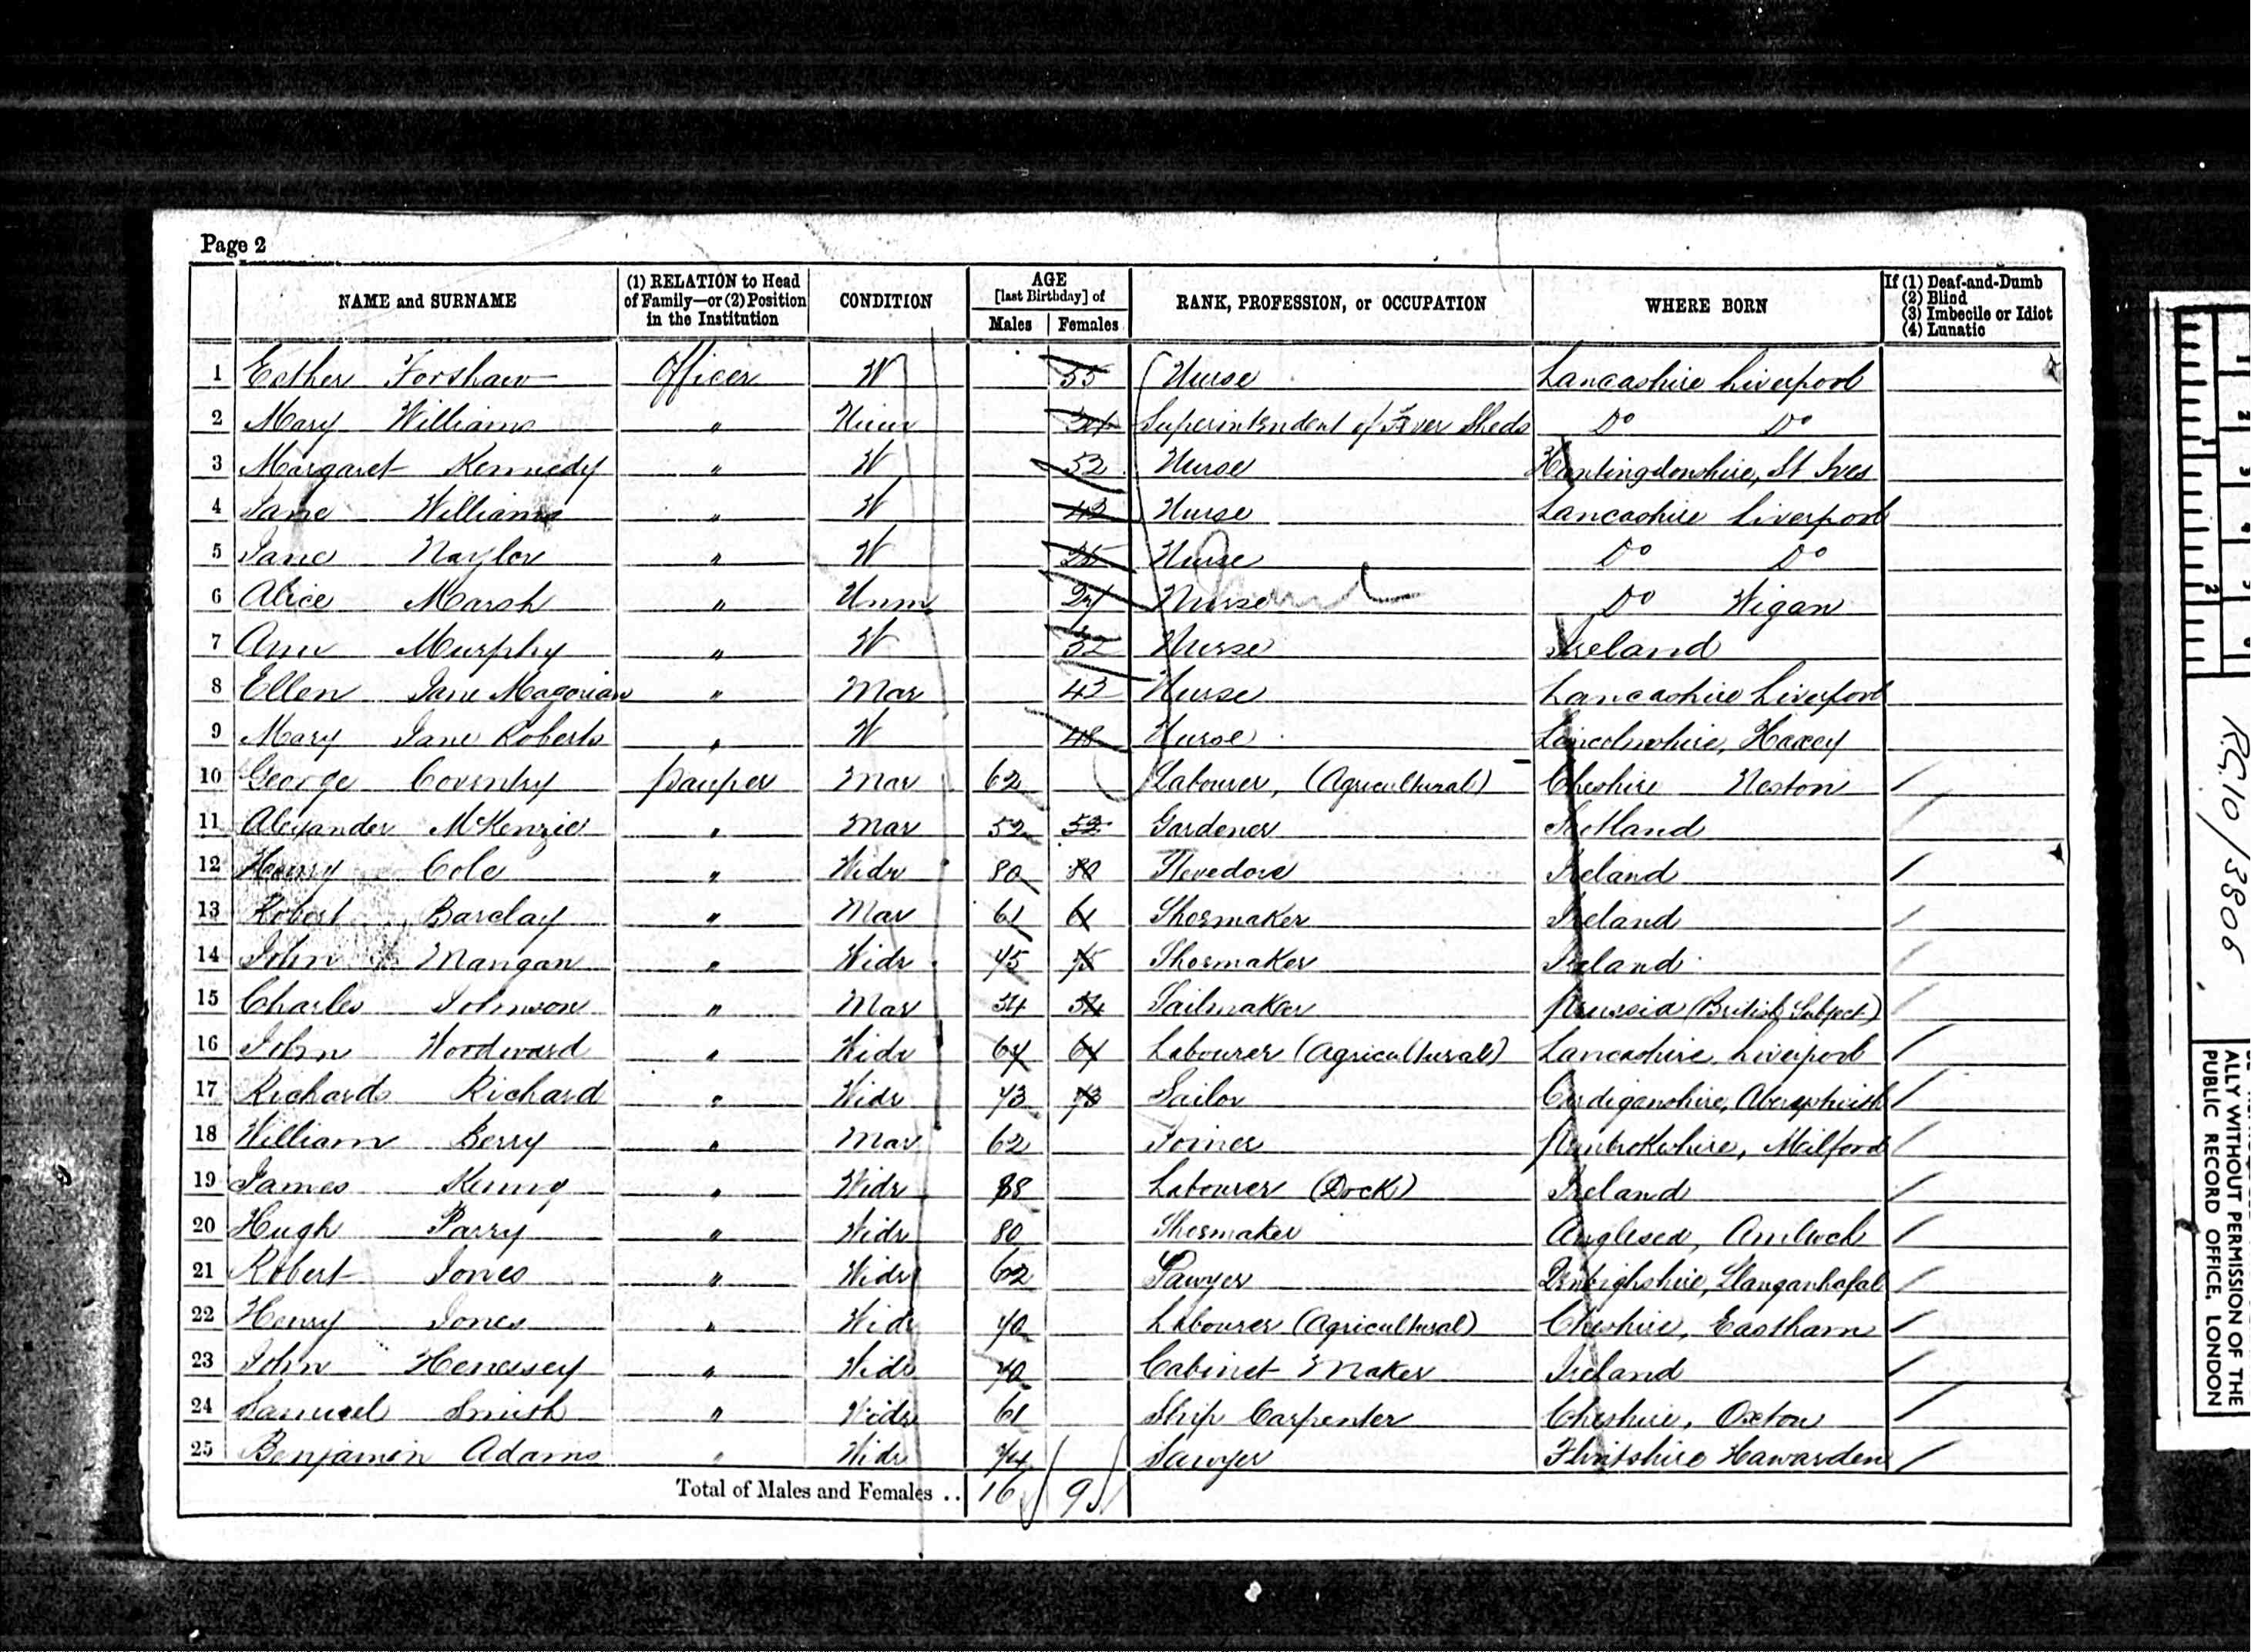 Page 2
NAME and SURNAME (1) RELATION to Head of Family—or (2) Position in the Institution CONDITION AGE [last Birthday] of Males Females RANK, PROFESSION, or OCCUPATION WHERE BORN If (1) Deaf-and-Dumb (2) Blind (3) Imbecile or Idiot (4) Lunatic
1 Esther Forshaw Officer W 55 Nurse Lancashire Liverpool
2 Mary Williams " Unm Superintendent of Fever Sheds Do Do
3 Margaret Kennedy " W 52 Nurse Huntingdonshire, St Ives
4 Jane Williams " W 43 Nurse Lancashire Liverpool
5 Jane Naylor " W 25 Nurse Do Do
6 Alice Marsh " Unm 24 Nurse Do Wigan
7 Ann Murphy " W 52 Nurse Ireland
8 Ellen Jane Magorian " Mar 43 Nurse Lancashire Liverpool
9 Mary Jane Roberts " W 48 Nurse Lincolnshire, Haxey
10 George Coventry pauper Mar 62 Labourer, (Agricultural) Cheshire Neston
11 Alexander McKenzie " Mar 52 52 Gardener Scotland
12 Henry Cole " Widr 80 80 Stevedore Ireland
13 Robert Barclay " Mar 61 61 Shoemaker Ireland
14 John Mangan " Widr 75 75 Shoemaker Ireland
15 Charles Johnson " Mar 54 54 Sailmaker Prussia (British Subject)
16 John Woodward " Widr 64 64 Labourer (Agricultural) Lancashire Liverpool
17 Richards Richard " Widr 73 73 Sailor Cardiganshire, Aberysthwith
18 William Berry " Mar 62 Joiner Pembrokshire, Milford
19 James " Widr 88 Labourer (Dock) Ireland
20 Hugh Parry " Widr 80 Shoemaker Anglesea, Amlwch
21 Robert Jones " Widr 62 Sawyer Denbighshire, Llanganhafal
22 Henry Jones " Widr 70 Labourer (Agricultural) Cheshire, Eastham
23 John Henessey " Widr 70 Cabinet Maker Ireland
24 Samuel Smith " Widr 61 Ship Carpenter Cheshire, Oxton
25 Benjamin Adams " Widr 74 Sawyer Flintshire Hawarden
Total of Males and Females .. 16 9
R.G. 10/3806
ALLY WITHOUT PERMISSION OF THE
PUBLIC RECORD OFFICE, LONDON